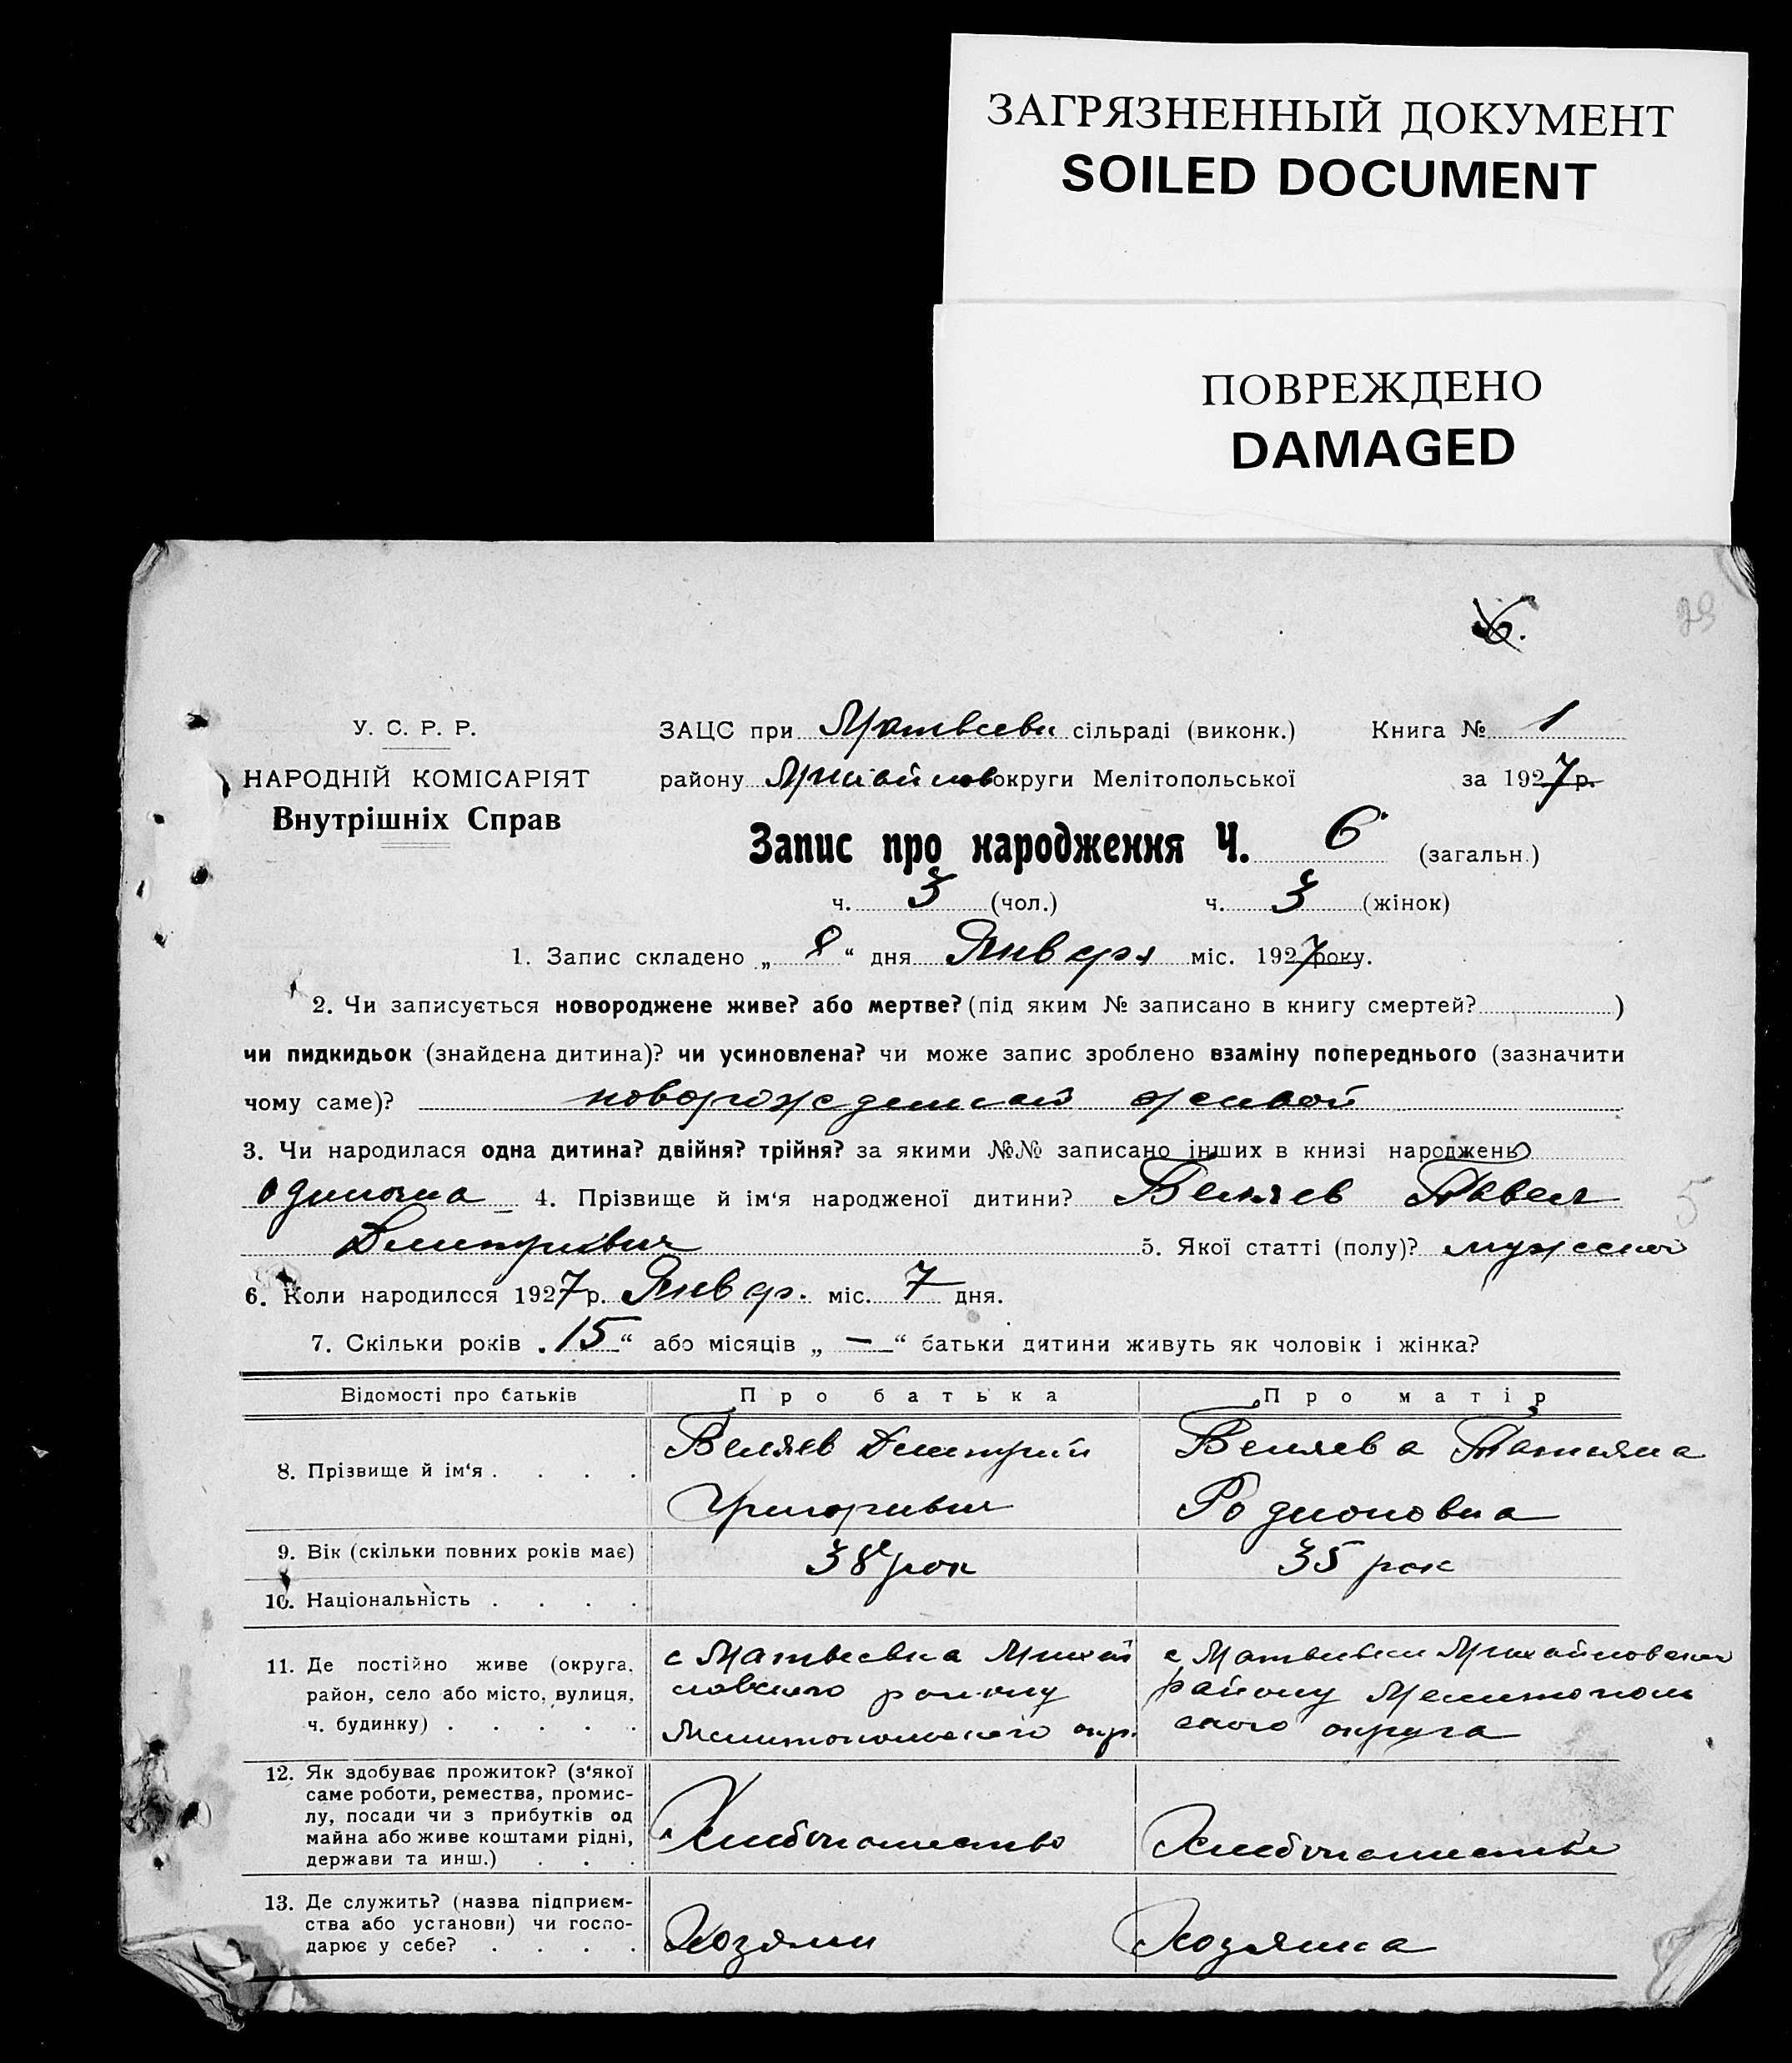 ЗАГРЯЗНЕННЫЙ ДОКУМЕНТ
SOILED DOCUMENT
ПОВРЕЖДЕНО
DAMAGED
6.
29
У. С. Р. Р.
НАРОДНІЙ КОМІСАРІЯТ
Внутрішніх Справ
ЗАЦС при Матвеевк сільраді (виконк.) Книга № 1
району Михайлов округи Мелітопольської за 1927 р.
Запис про народження Ч. 6 (загальн.)
ч. 3 (чол.) ч. 3 (жінок)
1. Запис складено „ 8 “ дня Января міс. 1927 року.
2. Чи записується новороджене живе? або мертве? (під яким № записано в книгу смертей? )
чи пидкидьок (знайдена дитина)? чи усиновлена? чи може запис зроблено взаміну попереднього (зазначити
чому саме)? новорожденной живой
3. Чи народилася одна дитина? двійня? трійня? за якими №№ записано інших в книзі народжень
одиночка 4. Прізвище й ім‘я народженої дитини? Беляев Павел
5
Дмитривич 5. Якої статті (полу)? мужской
6. Коли народилося 1927 р. Январ. міс. 7 дня.
7. Скільки років „ 15 “ або місяців „ — “ батьки дитини живуть як чоловік і жінка?
Відомості про батьків Про батька Про матір
8. Прізвище й ім‘я . . . . Беляев Дмитрий Беляева Татьяна
Григоривич Родионовна
9. Вік (скільки повних років має) 38 рок 35 рок
10. Національність . . . .
11. Де постійно живе (округа, район, село або місто, вулиця, ч. будинку) . . . . .
с Матвеевка Михай
ловского району
Мелитопольского окр.
с Матвеевки Михайловского
району Мелитополь
ского округа
12. Як здобуває прожиток? (з‘якої
саме роботи, ремества, промис-
лу, посади чи з прибутків од
майна або живе коштами рідні,
держави та инш.) . . .
Хлибопашество Хлибопашество
13. Де служить? (назва підприєм-
ства або установи) чи госпо-
дарює у себе? . . . .
Хозяин Хозяика